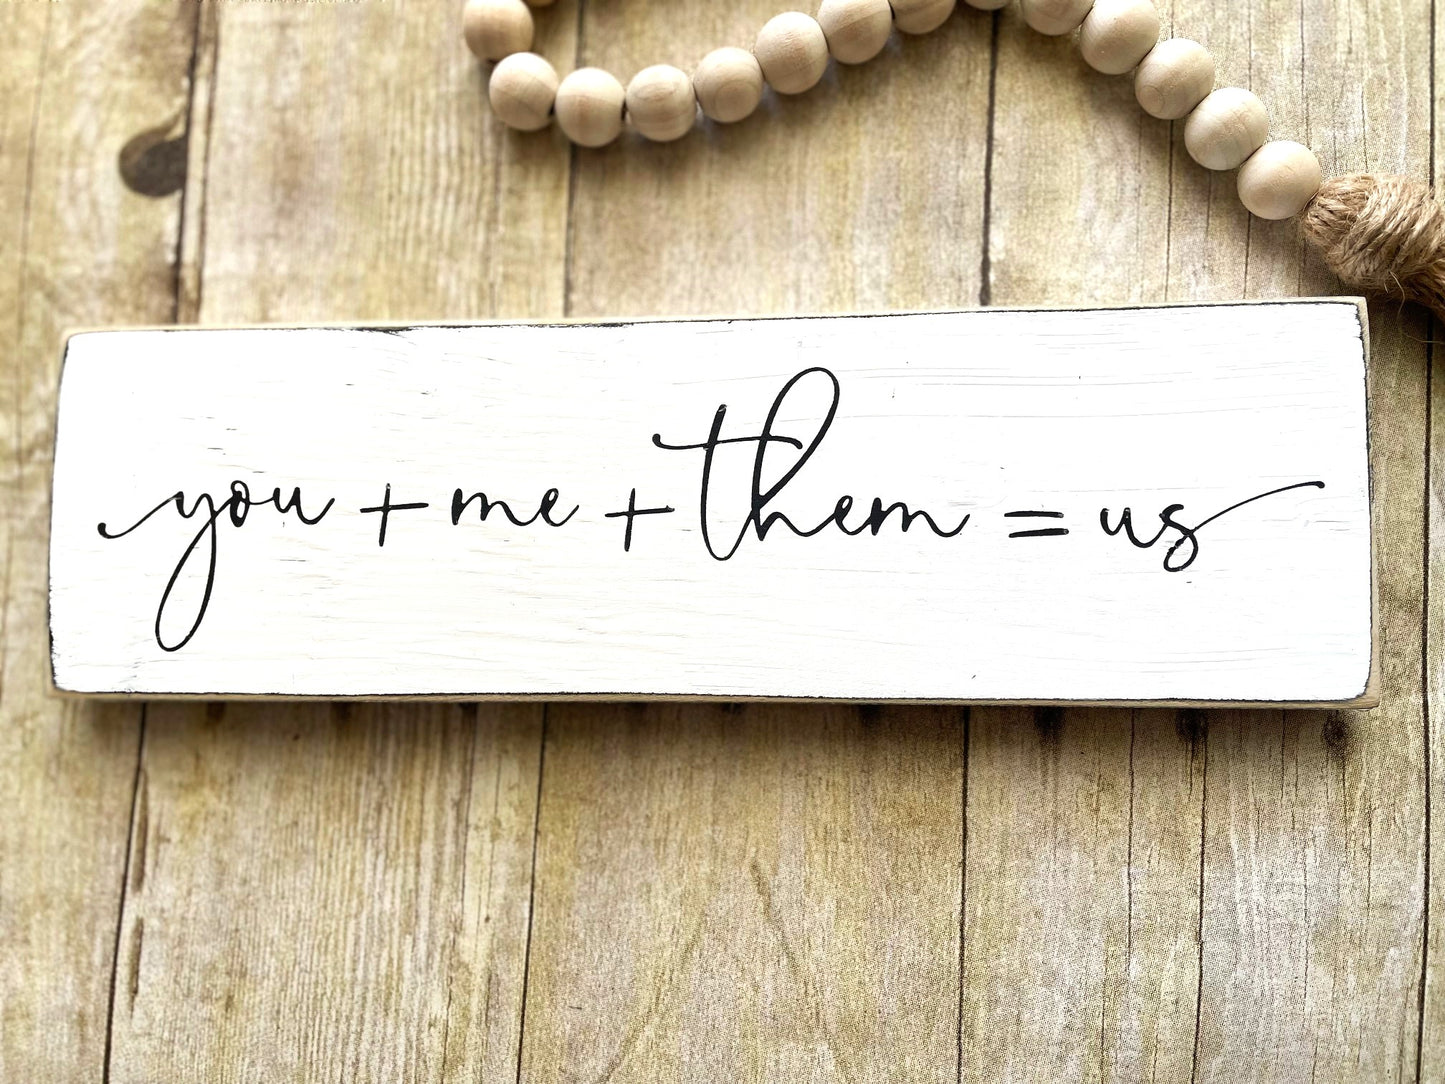 you + me + them = us